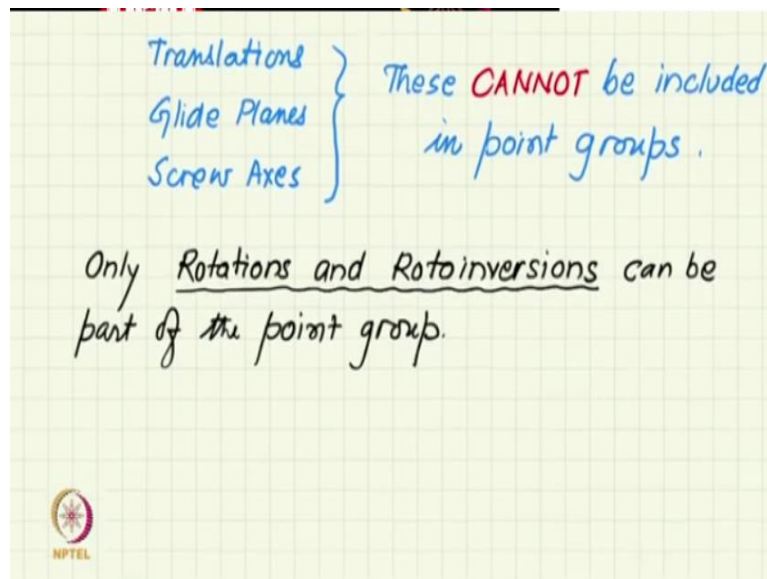 Translations
Glide Planes
Screw Axes
These CANNOT be included
in point groups.
Only Rotations and Rotoinversions can be
part of the point group.
NPTEL